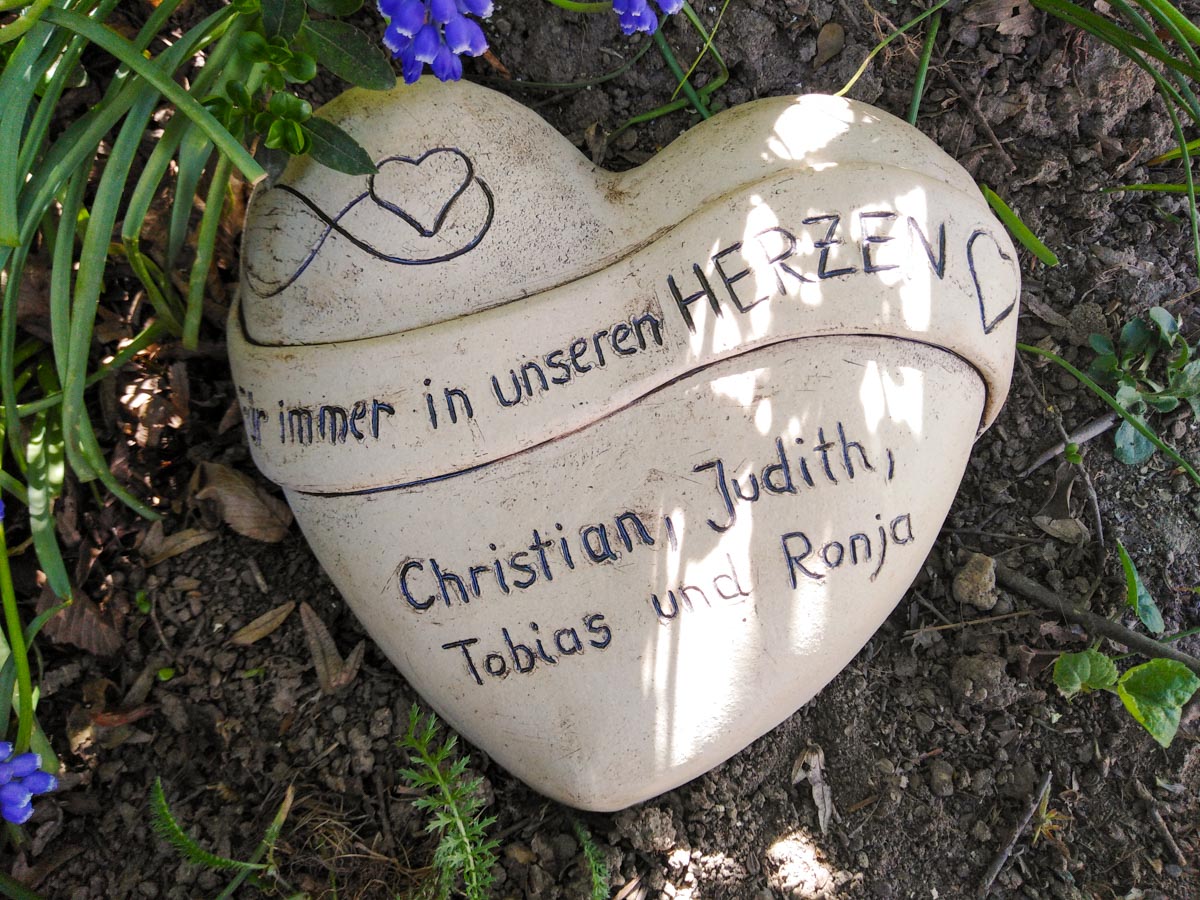 für immer in unseren HERZEN
Christian, Judith,
Tobias und Ronja